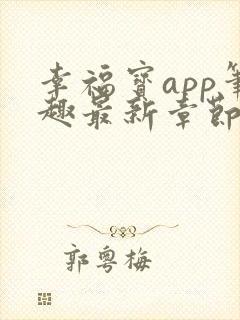 幸福宝app笔
趣最新章节
郭粤梅